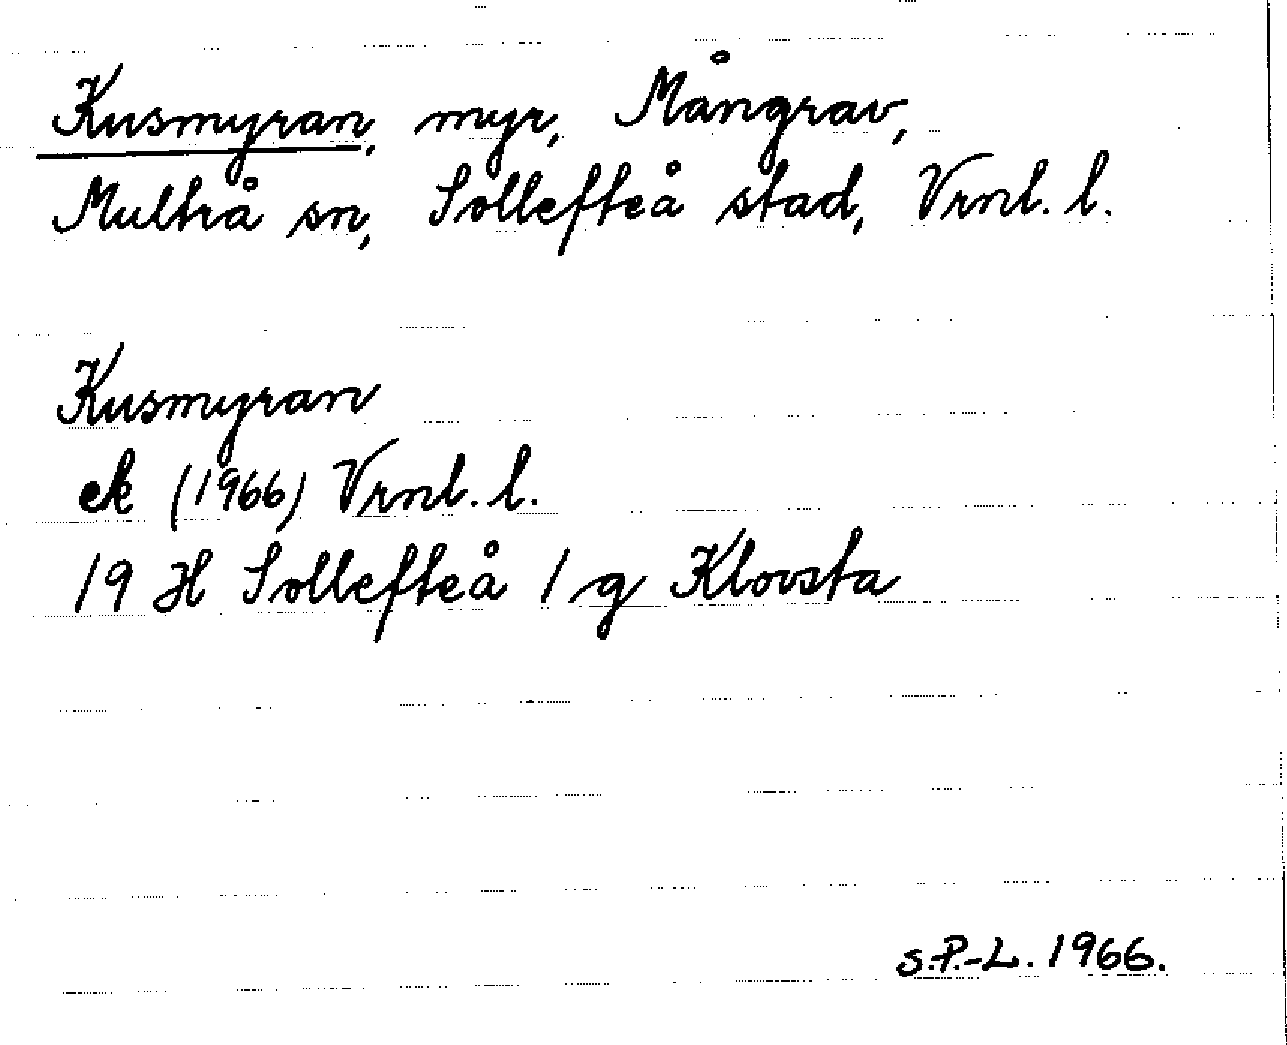 Kusmyran, myr, Mångrav,
Multrå sn, Sollefteå stad, Vrnl. l.
Kusmyran
ek (1966) Vrnl. l.
19 H Sollefteå 1 g Klovsta
S.P.-L. 1966.